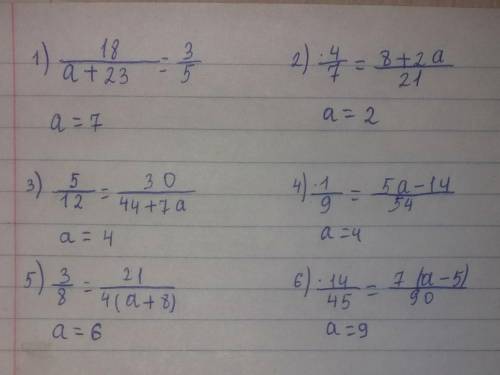 1) 18/(a+23) = 3/5
a = 7
2) ·4/7 = (8+2a)/21
a = 2
3) 5/12 = 30/(44+7a)
a = 4
4) ·1/9 = (5a-14)/54
a=4
5) 3/8 = 21/(4(a+8))
a = 6
6) ·14/45 = 7(a-5)/90
a=9